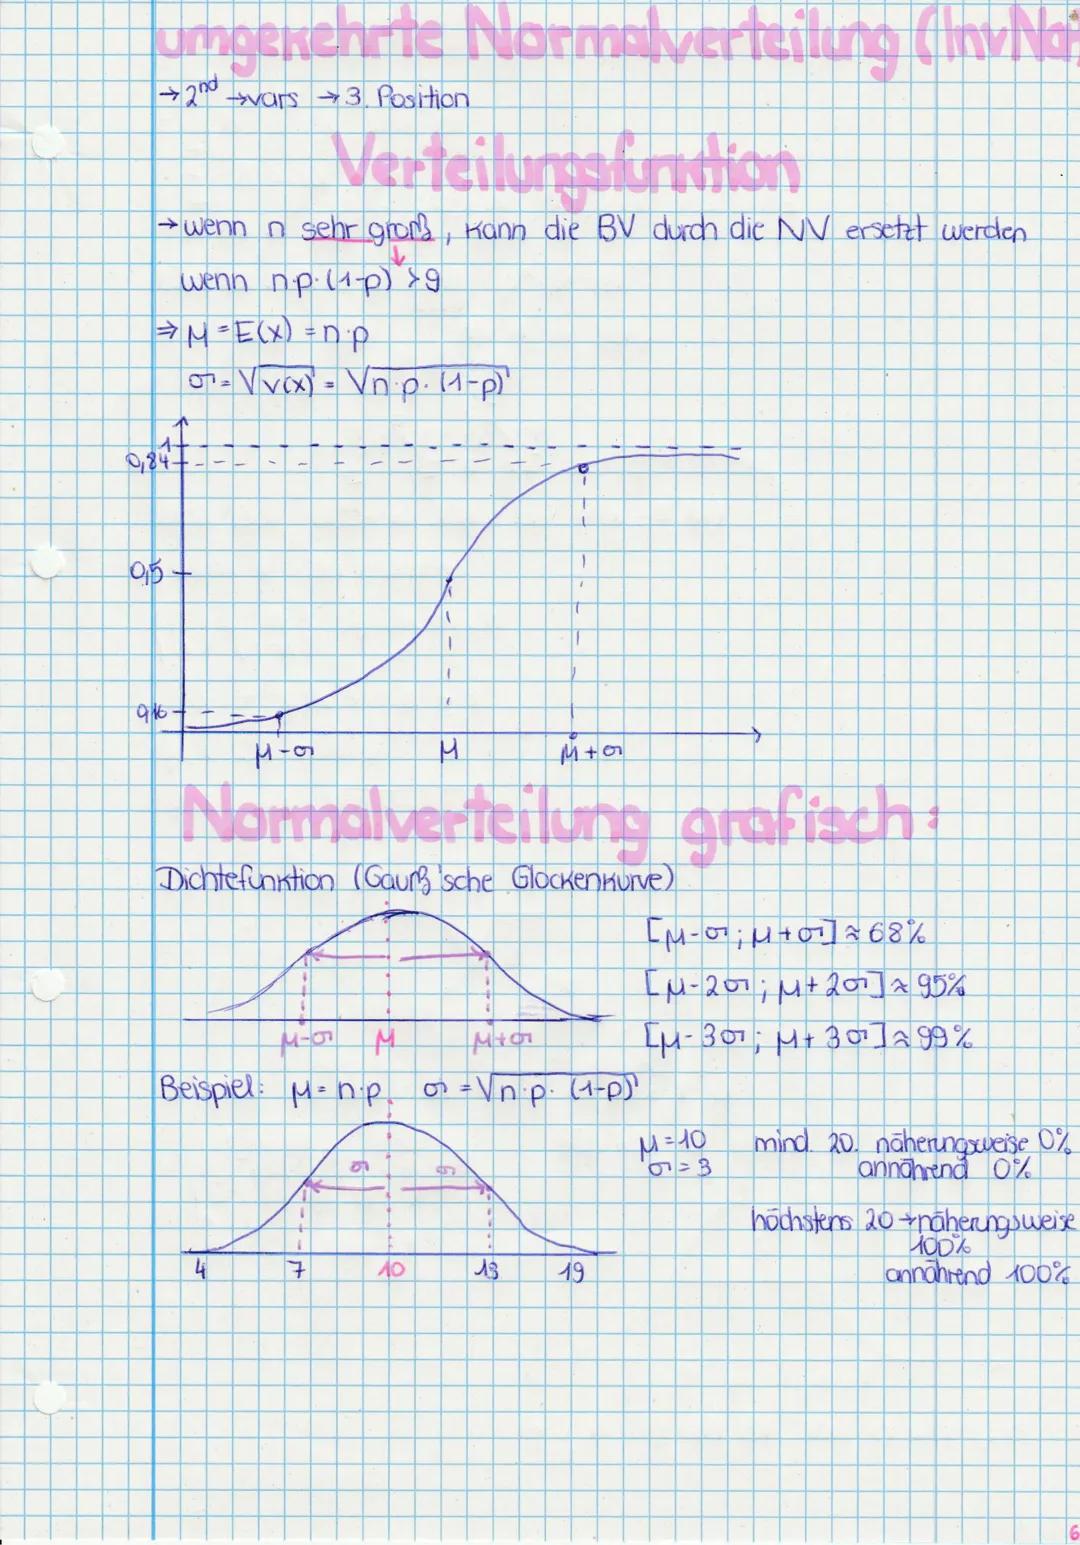 umgekehrte Normalverteilung (InvNor
→ 2nd → vars → 3. Position
Verteilungsfunktion
→ wenn n sehr groß, kann die BV durch die NV ersetzt werden
wenn n·p·(1-p) > 9
⇒ μ = E(x) = n·p
σ = √V(x) = √n·p·(1-p)
1
0,84
0,5
0,16
μ-σ μ μ+σ
Normalverteilung grafisch:
Dichtefunktion (Gauß'sche Glockenkurve)
[μ-σ; μ+σ] ≈ 68%
[μ-2σ; μ+2σ] ≈ 95%
[μ-3σ; μ+3σ] ≈ 99%
μ-σ μ μ+σ
Beispiel: μ = n·p σ = √n·p·(1-p)
μ = 10 mind. 20. näherungsweise 0%
σ = 3 annährend 0%
σ σ
höchstens 20 → näherungsweise
100%
annährend 100%
4 7 10 13 19
6